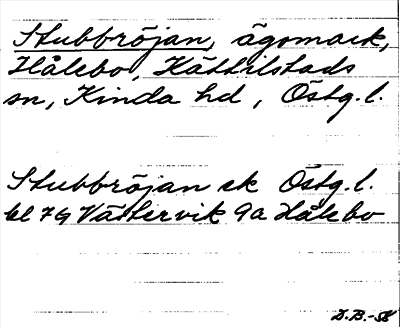 Stubbröjan, ägomark,
Hålebo, Kättilstads
sn, Kinda hd, Östg.l.
Stubbröjan ek Östg.l.
bl 7G Västervik 9a Hålebo